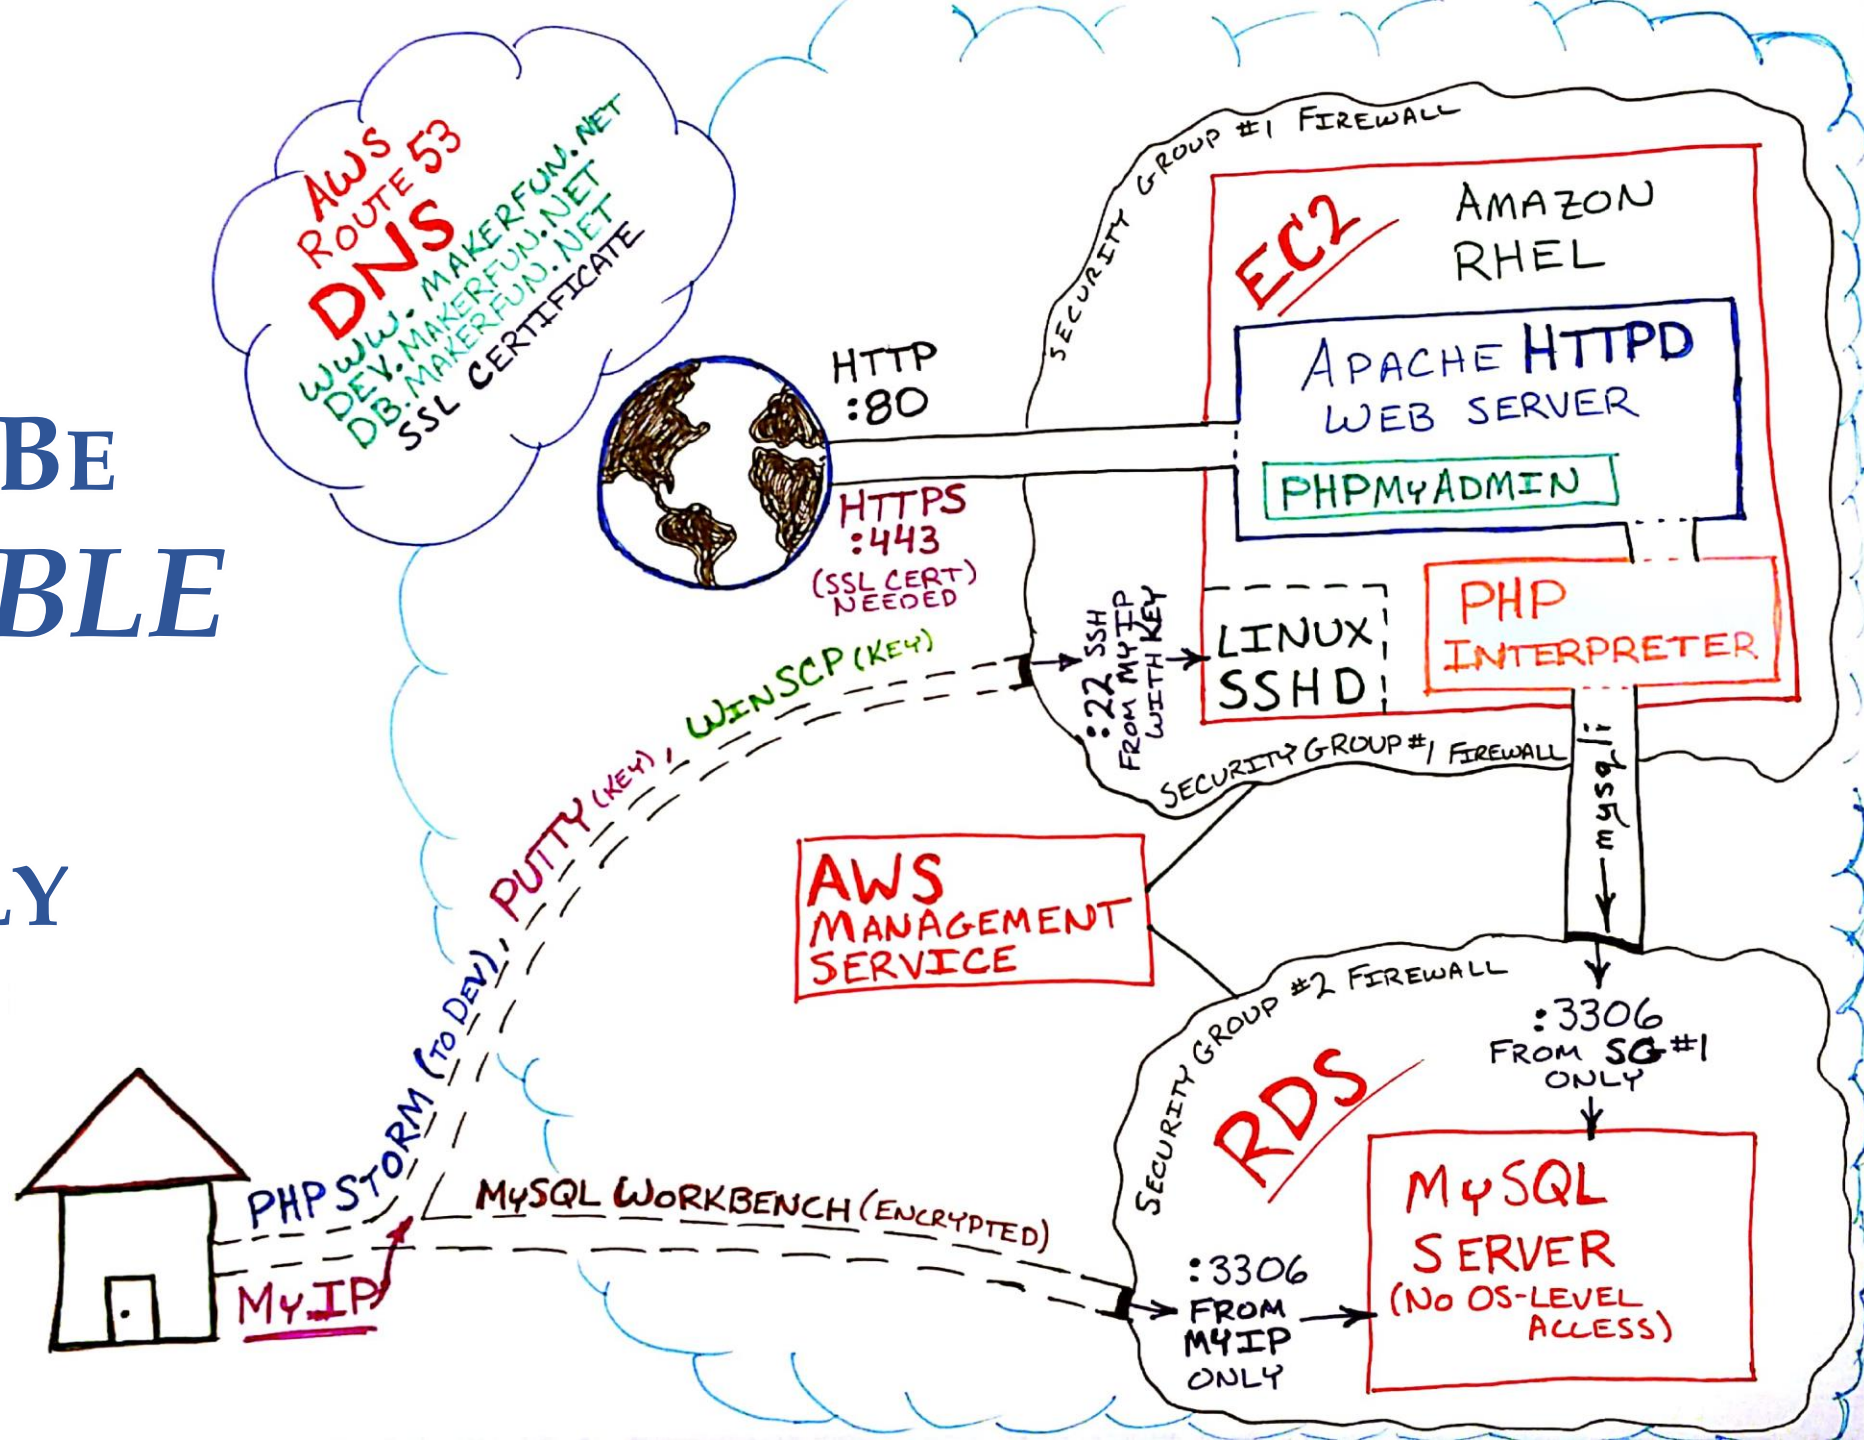 BE
BLE
LY
AWS
ROUTE 53
DNS
WWW.MAKERFUN.NET
DEV.MAKERFUN.NET
DB.MAKERFUN.NET
SSL CERTIFICATE
HTTP
:80
HTTPS
:443
(SSL CERT)
NEEDED
SECURITY GROUP #1 FIREWALL
EC2
AMAZON
RHEL
APACHE HTTPD
WEB SERVER
PHPMYADMIN
PHP
INTERPRETER
LINUX
SSHD
:22 SSH
FROM MYIP
WITH KEY
SECURITY GROUP #1 FIREWALL
mysqli
PHPSTORM (TO DEV), PUTTY (KEY), WINSCP (KEY)
AWS
MANAGEMENT
SERVICE
SECURITY GROUP #2 FIREWALL
RDS
:3306
FROM SG #1
ONLY
MYSQL
SERVER
(NO OS-LEVEL
ACCESS)
MYSQL WORKBENCH (ENCRYPTED)
MYIP
:3306
FROM
MYIP
ONLY